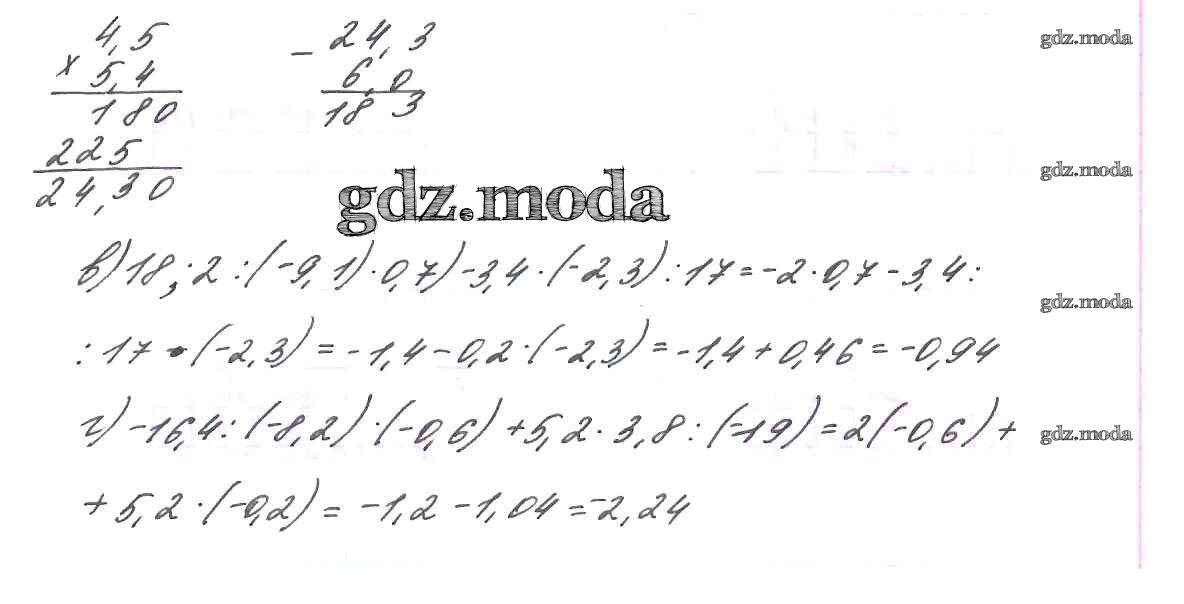 4,5
× 5,4
180
225
24,30
- 24,3
6,0
18 3
gdz.moda
gdz.moda
gdz.moda
в) 18,·2 : (-9,1)·0,7)-3,4·(-2,3):17=-2·0,7-3,4:
gdz.moda
:17·(-2,3)=-1,4-0,2·(-2,3)=-1,4+0,46=-0,94
г) -16,4:(-8,2)·(-0,6)+5,2·3,8:(-19)=2(-0,6)+
gdz.moda
+5,2·(-0,2)=-1,2-1,04=-2,24